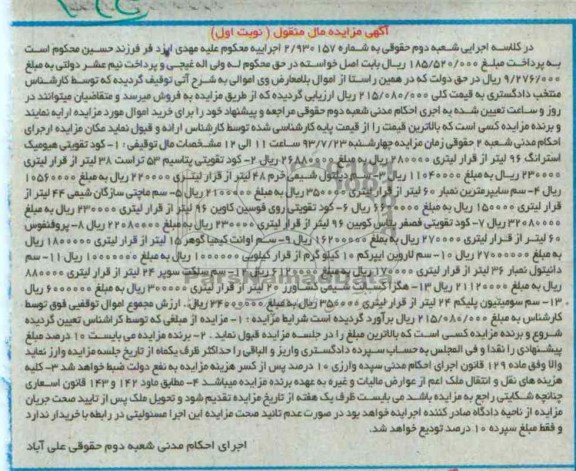 آگهی مزایده مال منقول ( نوبت اول)
در کلاسه اجرایی شعبه دوم حقوقی به شماره ۲/۹۳۰۱۵۷ اجراییه محکوم علیه مهدی ایزد فر فرزند حسین محکوم است
به پرداخت مبلغ ۱۸۵/۵۲۰/۰۰۰ ریال بابت اصل خواسته در حق محکوم له ولی اله غیجی و پرداخت نیم عشر دولتی به مبلغ
۹/۲۷۶/۰۰۰ ریال در حق دولت که در همین راستا از اموال بلامعارض وی اموالی به شرح آتی توقیف گردیده که توسط کارشناس
منتخب دادگستری به قیمت کلی ۲۱۵/۰۸۰/۰۰۰ ریال ارزیابی گردیده که از طریق مزایده به فروش میرسد و متقاضیان میتوانند در
روز و ساعت تعیین شده به اجری احکام مدنی شعبه دوم حقوقی مراجعه و پیشنهاد خود را برای خرید اموال مورد مزایده ارایه نمایند
و برنده مزایده کسی است که بالاترین قیمت را از قیمت پایه کارشناسی شده توسط کارشناس ارائه و قبول نماید مکان مزایده اجرای
احکام مدنی شعبه ۲ حقوقی زمان مزایده چهارشنبه ۹۳/۷/۲۳ ساعت ۱۱ الی ۱۲ مشخصات مال توقیفی : ۱- کود تقویتی هیومیک
استرانگ ۹۶ لیتر از قرار لیتری ۲۸۰۰۰۰ ریال به مبلغ ۲۶۸۸۰۰۰۰ ریال ۲- کود تقویتی پتاسیم ۵۳ تراست ۳۸ لیتر از قرار لیتری
۲۳۰۰۰۰ ریال به مبلغ ۱۱۰۴۰۰۰۰ ریال ۳- سم دیتلول شیمی خرم ۴۸ لیتر از قرار لیتری ۲۲۰۰۰۰ ریال به مبلغ ۱۰۵۶۰۰۰۰
ریال ۴- سم سایپرمترین نمبار ۶۰ لیتر از قرار لیتری ۳۵۰۰۰۰ ریال به مبلغ ۲۱۰۰۰۰۰۰ ریال ۵- سم ماچتی سازگان شیمی ۴۴ لیتر از
قرار لیتری ۱۵۰۰۰۰ ریال به مبلغ ۶۶۰۰۰۰۰ ریال ۶- کود تقویتی روی فوسین کاوین ۹۶ لیتر از قرار لیتری ۲۳۰۰۰۰ ریال به مبلغ
۲۲۰۸۰۰۰۰ ریال ۷- کود تقویتی فصفر پلاس کوبین ۹۶ لیتر از قرار لیتری ۲۳۰۰۰۰ ریال به مبلغ ۲۲۰۸۰۰۰۰ ریال ۸- پروفنفوس
۶۰ لیتر از قرار لیتری ۲۷۰۰۰۰ ریال به مبلغ ۱۶۲۰۰۰۰۰ ریال ۹- سم اوانت کیمیا گوهر ۱۵ لیتر از قرار لیتری ۱۸۰۰۰۰۰ ریال
به مبلغ ۲۷۰۰۰۰۰۰ ریال ۱۰- سم لاروین ایپرکم ۱۰ کیلو گرم از قرار کیلویی ۱۰۰۰۰۰۰ ریال به مبلغ ۱۰۰۰۰۰۰۰ ریال ۱۱- سم
دانیتول نمبار ۳۶ لیتر از قرار لیتری ۱۷۰۰۰۰ ریال به مبلغ ۶۱۲۰۰۰۰ ریال ۱۲- سم سلکت سوپر ۲۴ لیتر از قرار لیتری ۸۸۰۰۰۰
ریال به مبلغ ۲۱۱۲۰۰۰۰ ریال ۱۳- هگزاکسان شیمی کشاورز ۲۰ لیتر از قرار لیتری ۳۰۰۰۰۰ ریال به مبلغ ۶۰۰۰۰۰۰ ریال
۱۳- سم سومیتیون پلیکم ۲۴ لیتر از قرار لیتری ۳۵۰۰۰۰ ریال به مبلغ ریال . ارزش مجموع اموال توقیفی فوق توسط
کارشناس به مبلغ ۲۱۵/۰۸۰/۰۰۰ ریال برآورد گردیده است شرایط مزایده : ۱- مزایده از مبلغی که توسط کراشناس تعیین گردیده
شروع و برنده مزایده کسی است که بالاترین مبلغ را در جلسه مزایده قبول نماید . ۲- برنده مزایده می بایست ۱۰ درصد مبلغ
پیشنهادی را نقدا و فی المجلس به حساب سپرده دادگستری واریز و الباقی را حداکثر ظرف یکماه از تاریخ جلسه مزایده وارز نماید
والا وفق ماده ۱۲۹ قانون اجرای احکام مدنی سپده وارزی ۱۰ درصد پس از کسر هزینه مزایده به نفع دولت ضبط خواهد شد ۳- کلیه
هزینه های نقل و انتقال ملک اعم از عوارض مالیات و غیره به عهده برنده مزایده میباشد ۴- مطابق ماود ۱۴۲ و ۱۴۳ قانون اسعاری
چنانچه شکایتی راجع به مزایده باشد می بایست ظرف یک هفته از تاریخ مزایده تقدیم شود و تحویل ملک پس از تایید صحت جریان
مزایده از ناحیه دادگاه صادر کننده اجرایئه خواهد بود در صورت عدم تائید صحت مزایده این اجرا مسئولیتی در رابطه با خریدار ندارد
و فقط مبلغ سپرده ۱۰ درصد تودیع خواهد شد.
اجرای احکام مدنی شعبه دوم حقوقی علی آباد